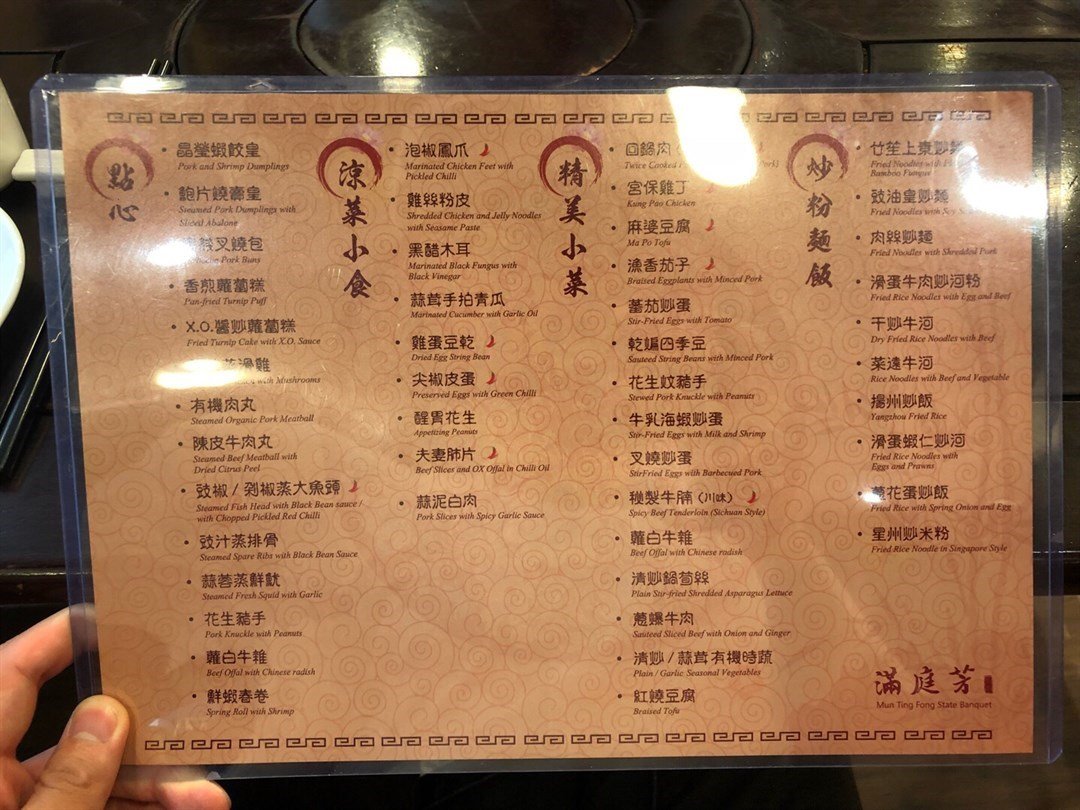 點心
晶瑩蝦餃皇
Pork and Shrimp Dumplings
鮑片燒賣皇
Steamed Pork Dumplings with
Sliced Abalone
叉燒包
Pork Buns
香煎蘿蔔糕
Pan-fried Turnip Puff
X.O.醬炒蘿蔔糕
Fried Turnip Cake with X.O. Sauce
滑雞
with Mushrooms
有機肉丸
Steamed Organic Pork Meatball
陳皮牛肉丸
Steamed Beef Meatball with
Dried Citrus Peel
豉椒 / 剁椒蒸大魚頭
Steamed Fish Head with Black Bean sauce /
with Chopped Pickled Red Chilli
豉汁蒸排骨
Steamed Spare Ribs with Black Bean Sauce
蒜蓉蒸鮮魷
Steamed Fresh Squid with Garlic
花生豬手
Pork Knuckle with Peanuts
蘿白牛雜
Beef Offal with Chinese radish
鮮蝦春卷
Spring Roll with Shrimp
涼菜小食
泡椒鳳爪
Marinated Chicken Feet with
Pickled Chilli
雞絲粉皮
Shredded Chicken and Jelly Noodles
with Seasame Paste
黑醋木耳
Marinated Black Fungus with
Black Vinegar
蒜茸手拍青瓜
Marinated Cucumber with Garlic Oil
雞蛋豆乾
Dried Egg String Bean
尖椒皮蛋
Preserved Eggs with Green Chilli
醒胃花生
Appetizing Peanuts
夫妻肺片
Beef Slices and OX Offal in Chilli Oil
蒜泥白肉
Pork Slices with Spicy Garlic Sauce
精美小菜
回鍋肉
Twice Cooked
宮保雞丁
Kung Pao Chicken
麻婆豆腐
Ma Po Tofu
漁香茄子
Braised Eggplants with Minced Pork
蕃茄炒蛋
Stir-Fried Eggs with Tomato
乾煸四季豆
Sauteed String Beans with Minced Pork
花生炆豬手
Stewed Pork Knuckle with Peanuts
牛乳海蝦炒蛋
Stir-Fried Eggs with Milk and Shrimp
叉燒炒蛋
StirFried Eggs with Barbecued Pork
秘製牛腩 (川味)
Spicy Beef Tenderloin (Sichuan Style)
蘿白牛雜
Beef Offal with Chinese radish
清炒鍋筍絲
Plain Stir-fried Shredded Asparagus Lettuce
蔥爆牛肉
Sauteed Sliced Beef with Onion and Ginger
清炒 / 蒜茸有機時蔬
Plain / Garlic Seasonal Vegetables
紅燒豆腐
Braised Tofu
炒粉麵飯
竹笙上素炒麵
Fried Noodles with
Bamboo Fungus
豉油皇炒麵
Fried Noodles with Soy
肉絲炒麵
Fried Noodles with Shredded Pork
滑蛋牛肉炒河粉
Fried Rice Noodles with Egg and Beef
干炒牛河
Dry Fried Rice Noodles with Beef
菜遠牛河
Rice Noodles with Beef and Vegetable
揚州炒飯
Yangzhou Fried Rice
滑蛋蝦仁炒河
Fried Rice Noodles with
Eggs and Prawns
蔥花蛋炒飯
Fried Rice with Spring Onion and Egg
星州炒米粉
Fried Rice Noodle in Singapore Style
滿庭芳
Mun Ting Fong State Banquet